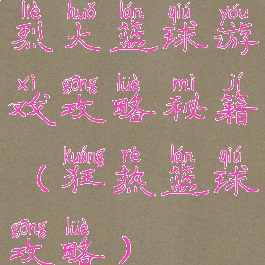 liè huǒ lán qiú yóu
烈火篮球游
xì gōng lüè mì jí
戏攻略秘籍
kuáng rè lán qiú
（狂热篮球
gōng lüè
攻略）